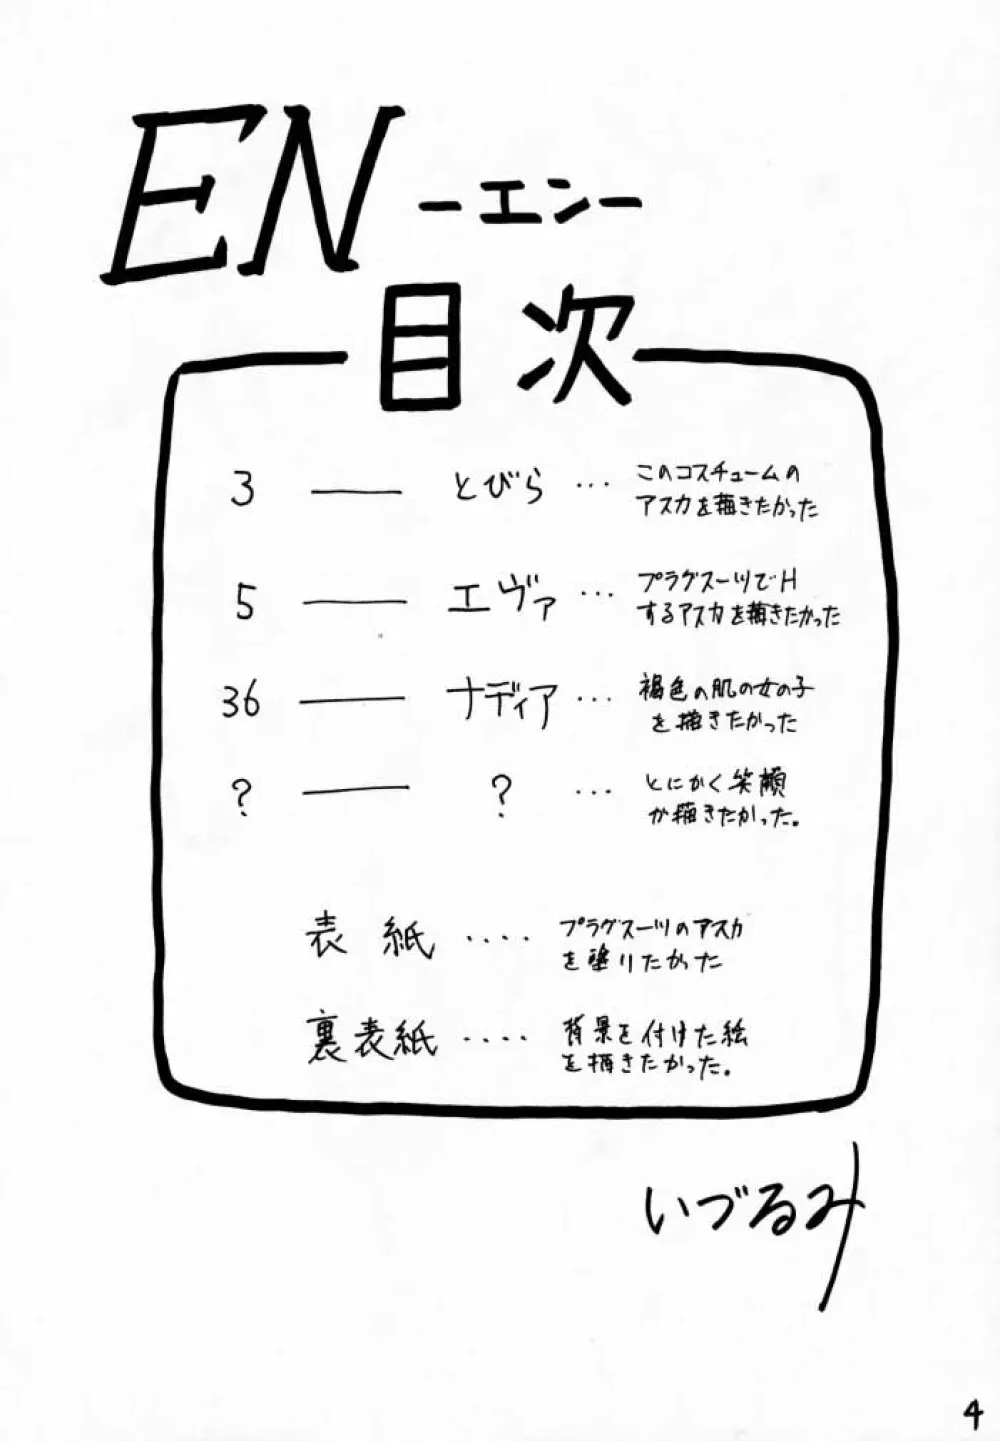 EN -エン-
目次
3 —— とびら ・・・ このコスチュームの
アスカを描きたかった
5 —— エヴァ ・・・ プラグスーツでH
するアスカを描きたかった
36 —— ナディア ・・・ 褐色の肌の女の子
を描きたかった
? —— ? ・・・ とにかく笑顔
が描きたかった。
表紙 ・・・・ プラグスーツのアスカ
を塗りたかった
裏表紙 ・・・・ 背景を付けた絵
を描きたかった。
いづるみ
4